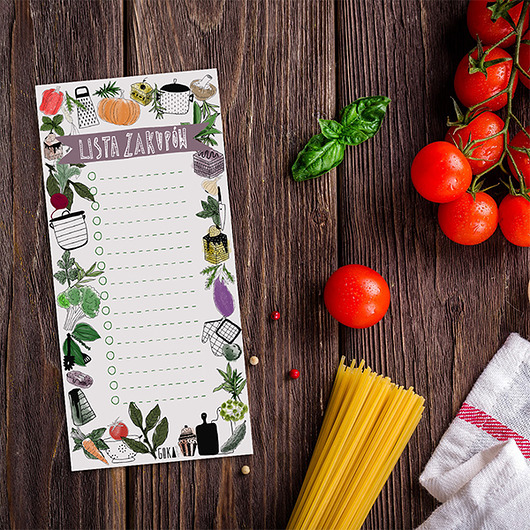 LISTA ZAKUPÓW
GOKA